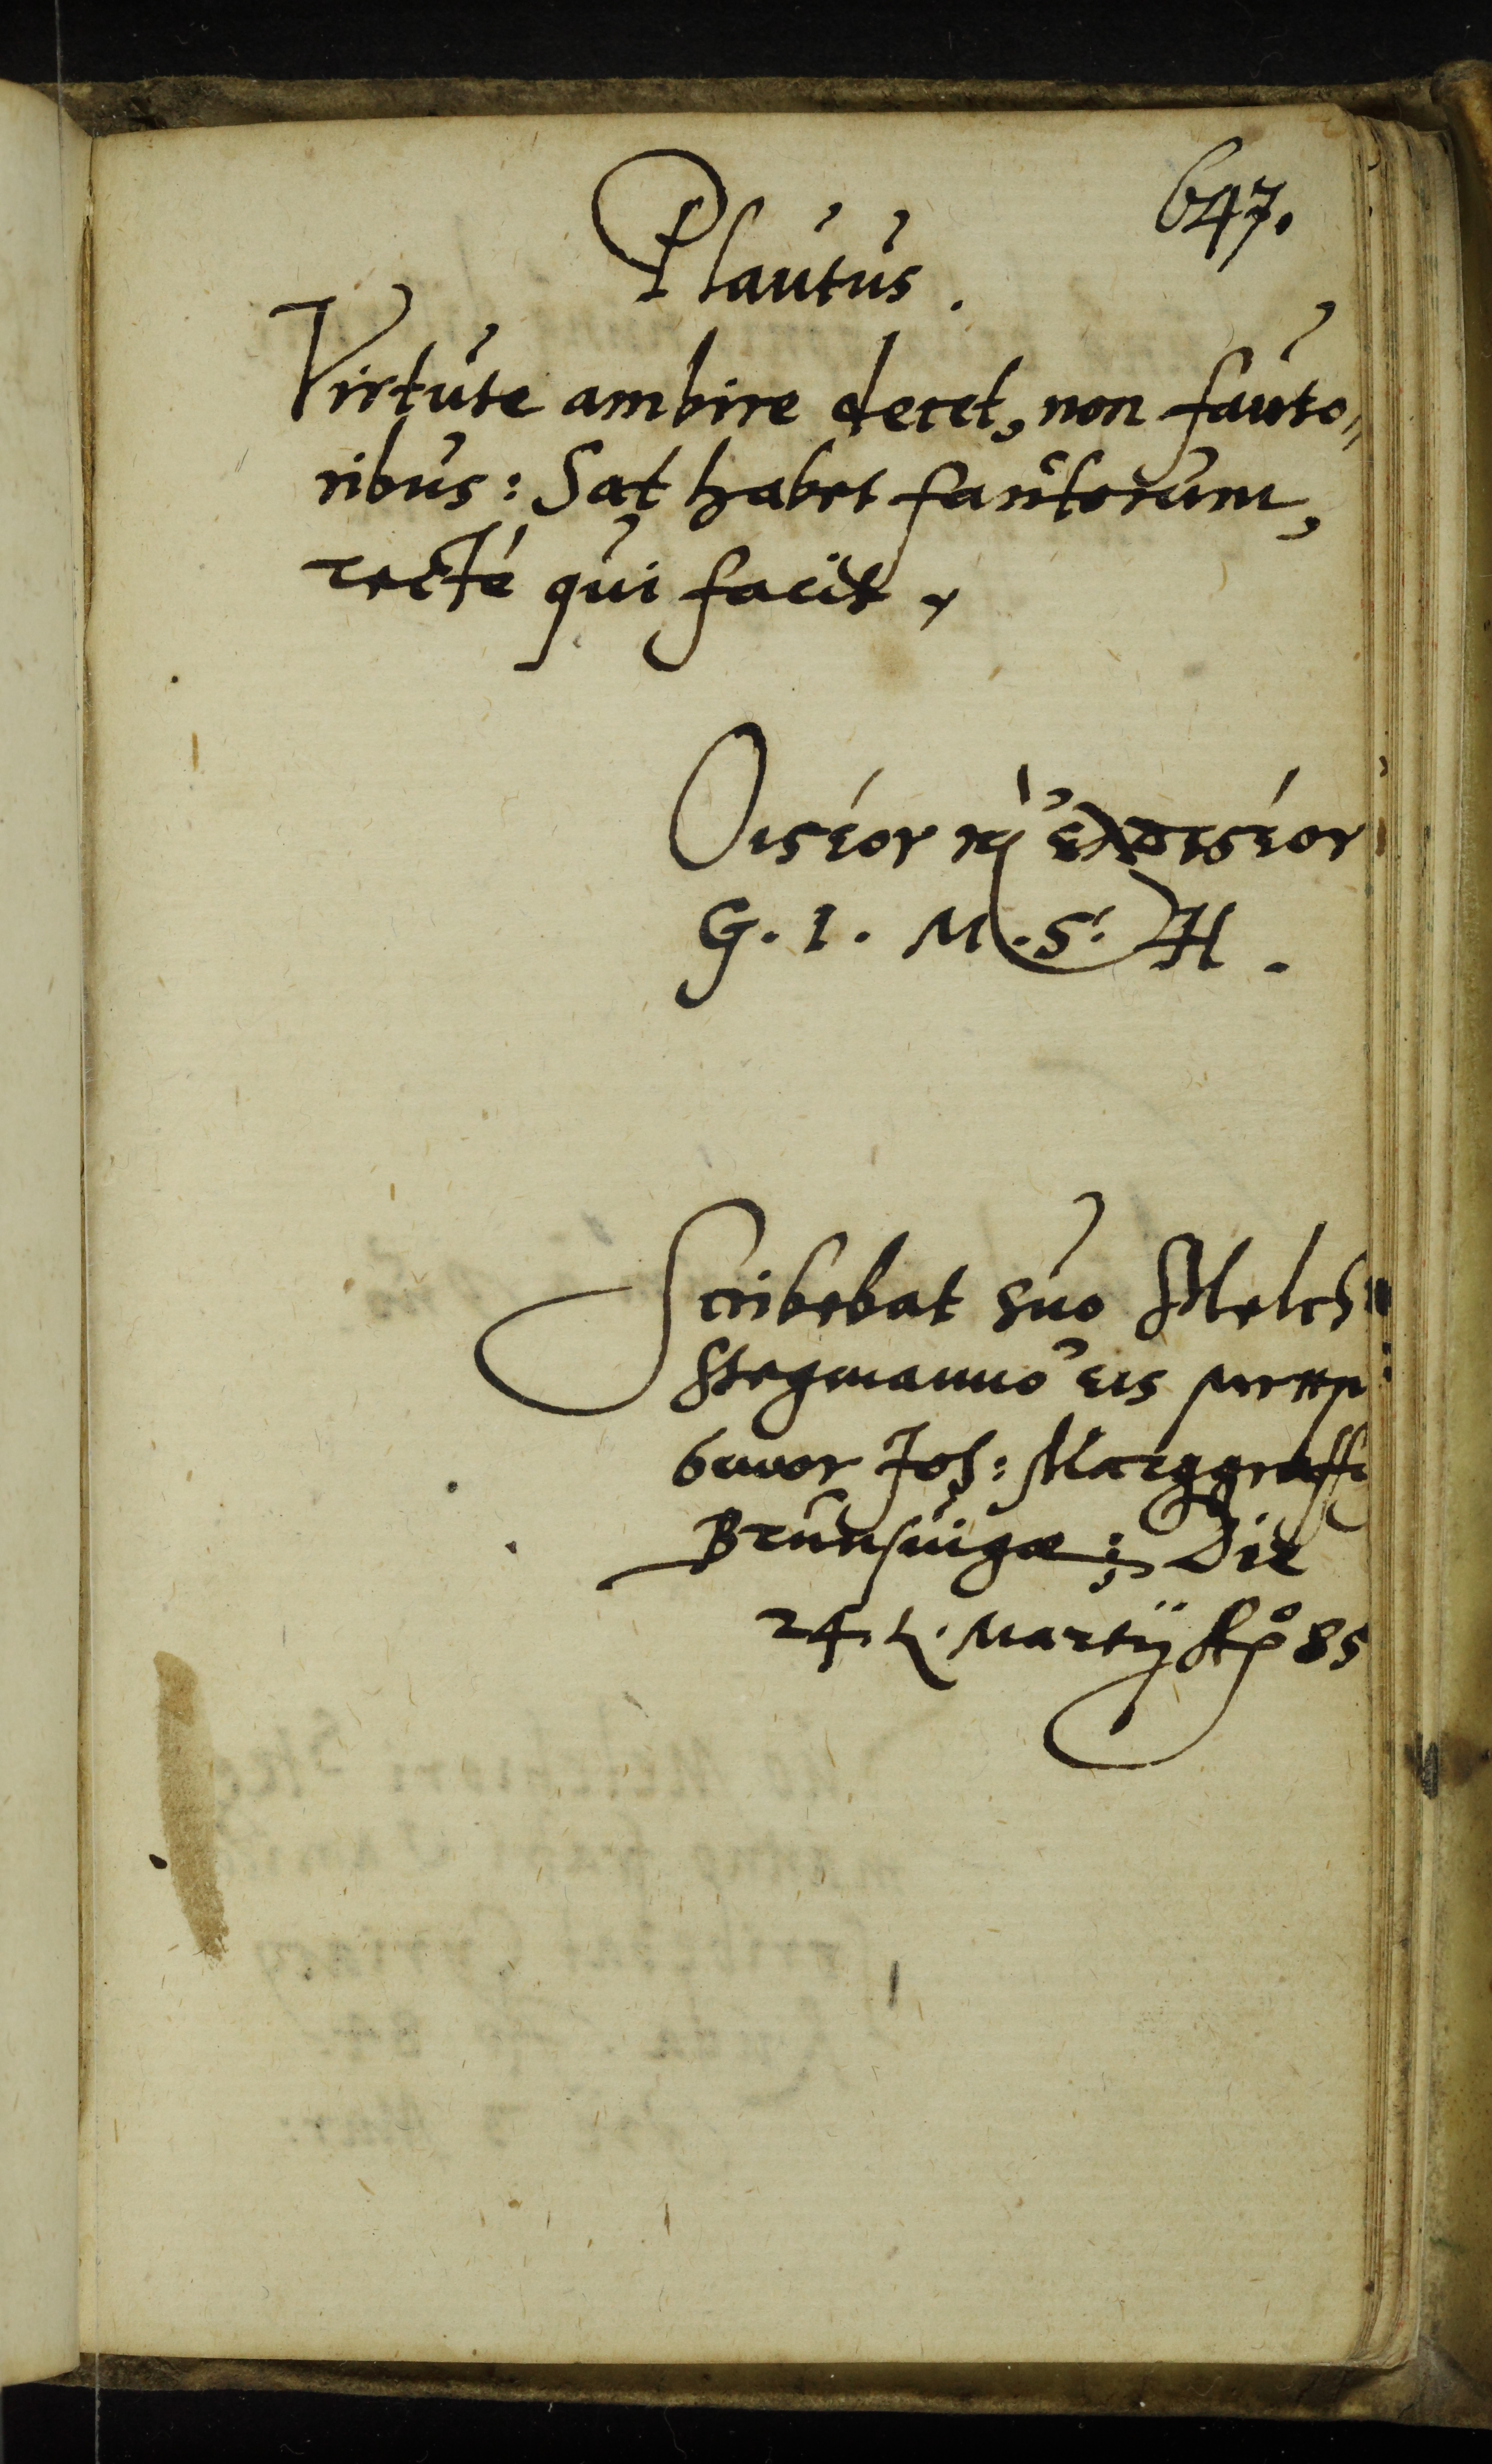 647.
Plautus.
Virtute ambire decet, non fauto„
ribus: Sat habet fautorum,
recté qui facit.
Οἰστέον καὶ ἐλπιστέον
G. I. M. S. H.
Scribebat suo Melch
Stegmanno εις
Joh: Marggraff
Brunsuigæ; Die
24. Martij Aõ 85